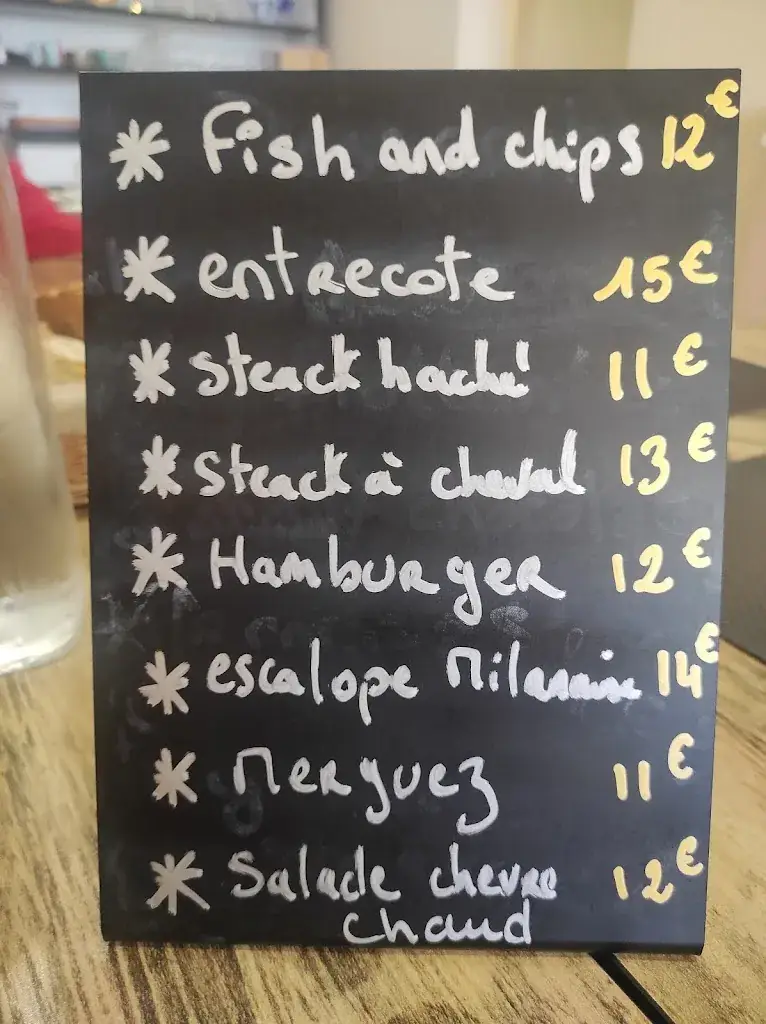 * Fish and chips 12€
* entrecote 15€
* steack haché 11€
* steack à cheval 13€
* Hamburger 12€
* escalope Milanaise 14€
* Merguez 11€
* Salade chevre 12€
chaud